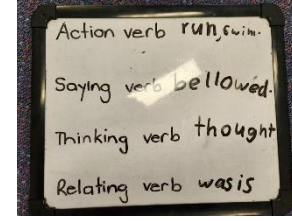 Action verb run, swim.
Saying verb bellowed.
Thinking verb thought
Relating verb was is